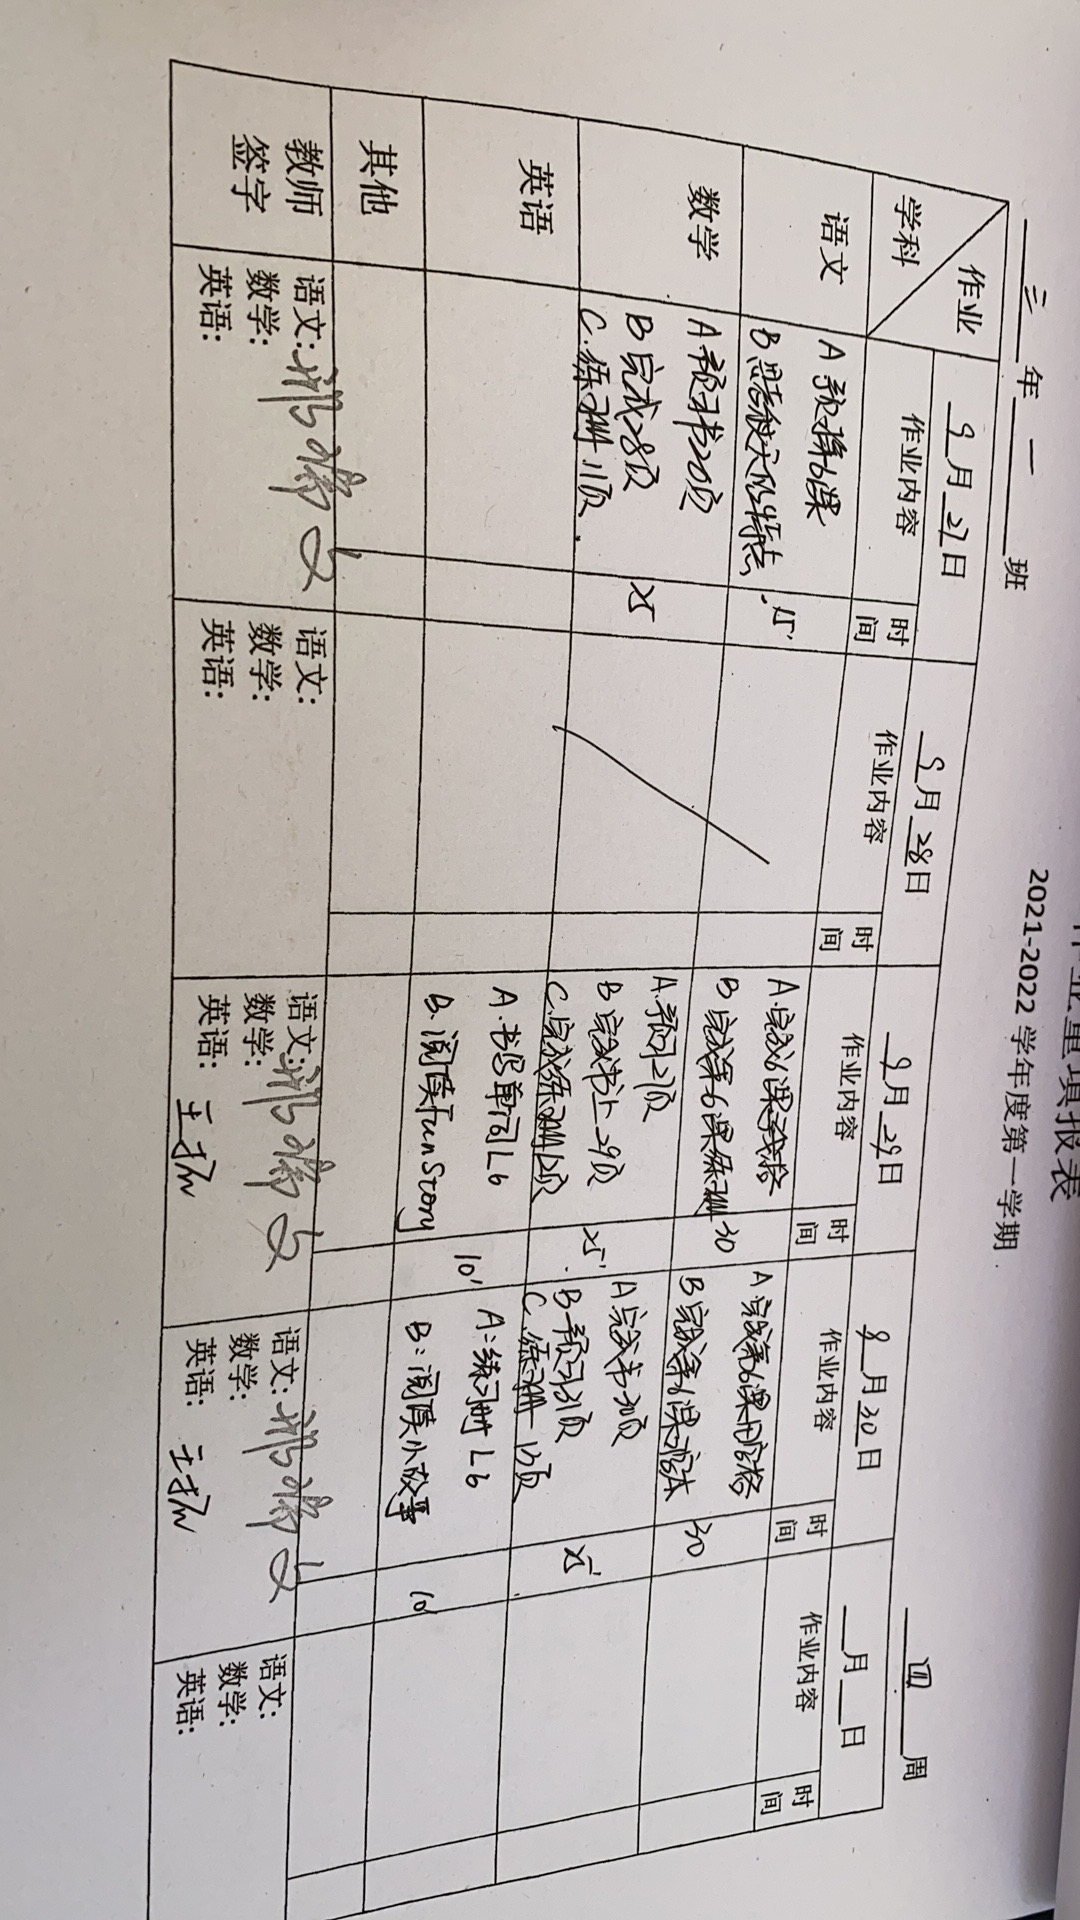 作业量填报表
2021-2022 学年度第一学期
三 年 一 班
四 周
作业
学科
9月27日
9月28日
9月29日
9月30日
月 日
作业内容
时间
作业内容
时间
作业内容
时间
作业内容
时间
作业内容
时间
语文
A 预习第6课
B 思考 特点
15'
A.完成6课
B 完成第6课练习册
30
A 完成第6课田字格
B 完成第6课
30
数学
A.预习书20页
B 完成28页
C.练习册11页.
25
A.预习21页
B 完成书上29页
C.完成练习册12页
25'
A 完成书30页
B 预习31页
C.练习册13页
25'
英语
A.书写单词L6
B.阅读Fun Story
10'
A:练习册L6
B:阅读小故事
10'
其他
教师
签字
语文:
数学:
英语:
语文:
数学:
英语:
语文:
数学:
英语:
语文:
数学:
英语:
语文:
数学:
英语: